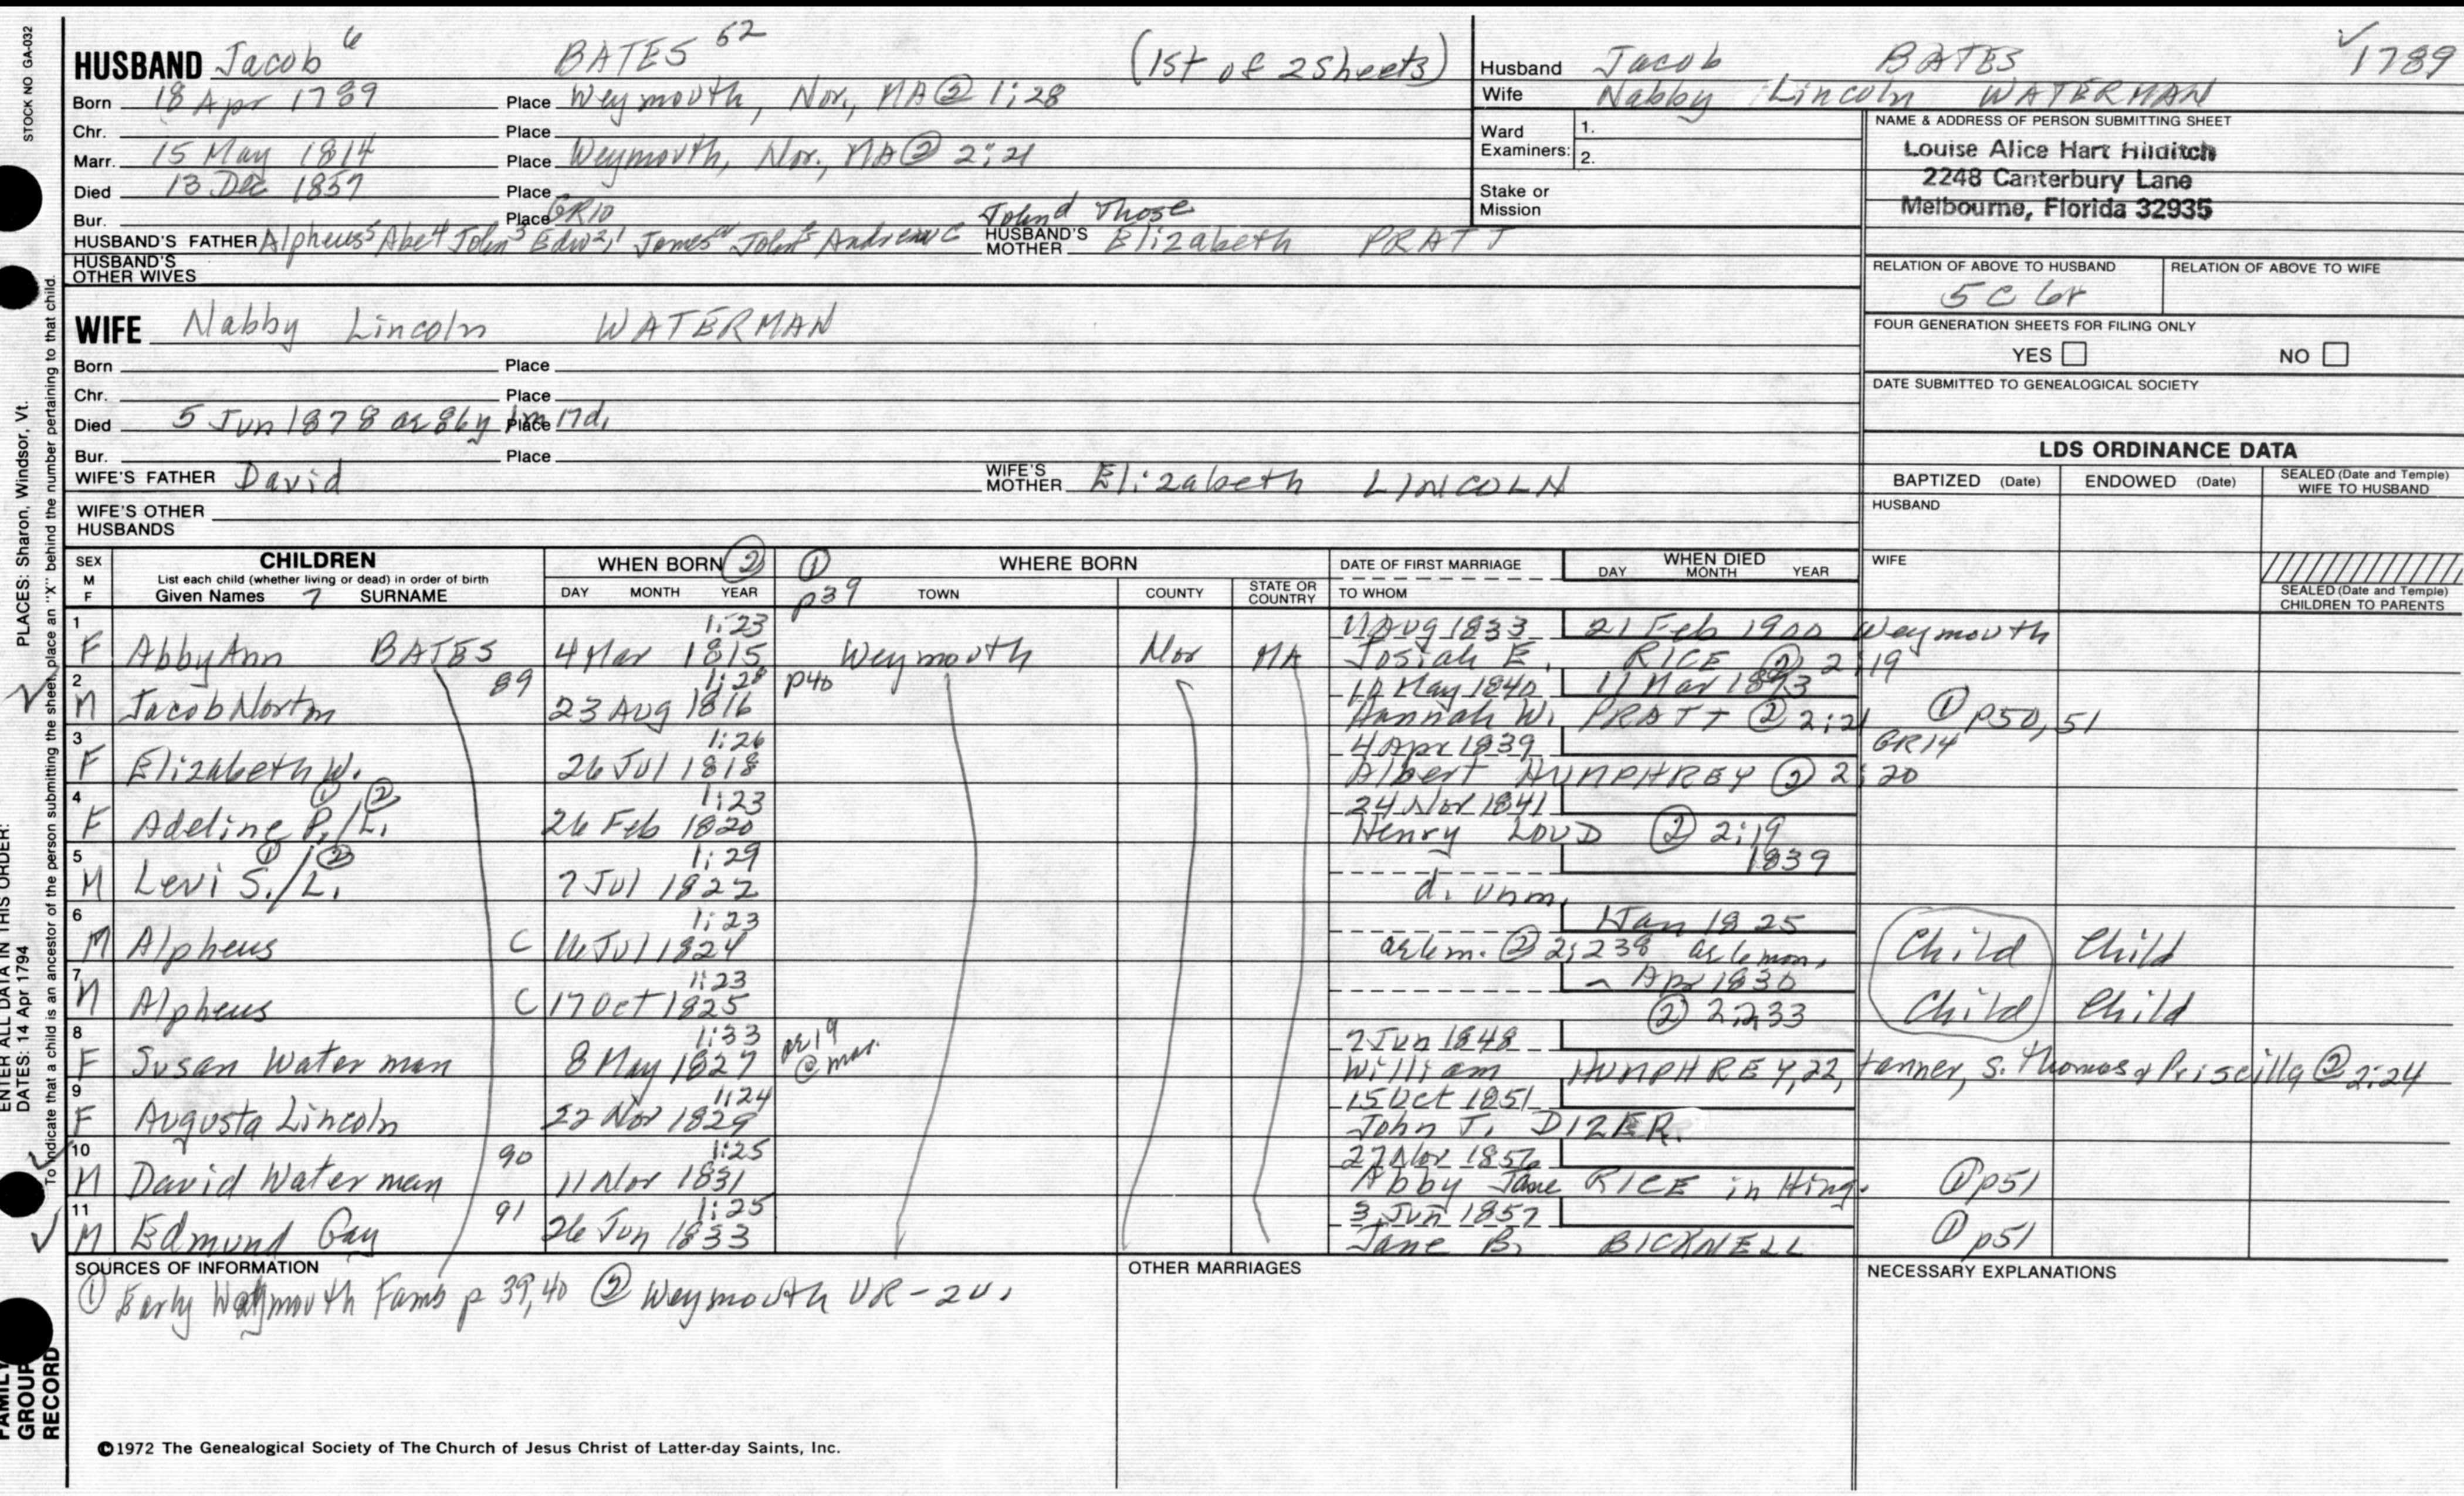 HUSBAND Jacob 6 BATES 52 (1st of 2 Sheets)
Born 18 Apr 1789 Place Weymouth, Nor., MA @ 1:28
Chr. Place
Marr. 15 May 1814 Place Weymouth, Nor., MA ② 2:21
Died 13 Dec 1857 Place
Bur. Place GR10
HUSBAND'S FATHER Alpheus5 Abe4 John3 Edw2,1 James John Andrew HUSBAND'S MOTHER Elizabeth PRATT
HUSBAND'S OTHER WIVES
Husband Jacob BATES 1789
Wife Nabby Lincoln WATERMAN
Ward Examiners: 1.
2.
Stake or Mission
NAME & ADDRESS OF PERSON SUBMITTING SHEET
Louise Alice Hart Hilditch
2248 Canterbury Lane
Melbourne, Florida 32935
RELATION OF ABOVE TO HUSBAND RELATION OF ABOVE TO WIFE
5 C 6r
FOUR GENERATION SHEETS FOR FILING ONLY
YES NO
DATE SUBMITTED TO GENEALOGICAL SOCIETY
WIFE Nabby Lincoln WATERMAN
Born Place
Chr. Place
Died 5 Jun 1878 ae 86y Place 17d.
Bur. Place
WIFE'S FATHER David WIFE'S MOTHER Elizabeth LINCOLN
WIFE'S OTHER HUSBANDS
LDS ORDINANCE DATA
BAPTIZED (Date) ENDOWED (Date) SEALED (Date and Temple) WIFE TO HUSBAND
HUSBAND
WIFE
SEALED (Date and Temple) CHILDREN TO PARENTS
SEX M F CHILDREN WHEN BORN ② ① p39 WHERE BORN DATE OF FIRST MARRIAGE WHEN DIED
List each child (whether living or dead) in order of birth
Given Names 7 SURNAME DAY MONTH YEAR TOWN COUNTY STATE OR COUNTRY TO WHOM DAY MONTH YEAR
1 1:23 Aug 1833 21 Feb 1900 Weymouth
F Abby Ann BATES 4 Mar 1815 Weymouth Nor MA Josiah E. RICE ② 2:19
2 89 1:28 p40 May 1840 11 Mar 1893
M Jacob Norton 23 Aug 1816 Hannah W. PRATT ② 2:21 ① p50,51
3 1:26 4 Apr 1839 GR14
F Elizabeth W. 26 Jul 1818 Albert HUMPHREY ② 2:20
4 ① ② 1:23 24 Nov 1841
F Adeline P./L. 26 Feb 1820 Henry LOUD ② 2:19
5 ① ② 1:29 1839
M Levi S./L. 7 Jul 1822 d. unm.
6 1:23 1 Jan 1825
M Alpheus C 16 Jul 1824 ae 6m. ② 2:238 ae 6 mon. Child Child
7 1:23 - Apr 1830
M Alpheus C 17 Oct 1825 ② 2:233 Child Child
8 1:33 ae 19 @ mar. 7 Jun 1848
F Susan Waterman 8 May 1827 William HUMPHREY, 22, tanner, s. Thomas & Priscilla ② 2:24
9 1:24 15 Oct 1851
F Augusta Lincoln 22 Nov 1829 John J. DIZER.
10 90 1:25 27 Nov 1856
M David Waterman 11 Nov 1831 Abby Jane RICE in Hing. ① p51
11 91 1:25 3 Jun 1857
M Edmund Gay 26 Jun 1833 Jane B. BICKNELL ① p51
SOURCES OF INFORMATION OTHER MARRIAGES NECESSARY EXPLANATIONS
① Early Weymouth Fams p 39,40 ② Weymouth VR - 2v.
©1972 The Genealogical Society of The Church of Jesus Christ of Latter-day Saints, Inc.
STOCK NO GA-032
PLACES: Sharon, Windsor, Vt.
To indicate that a child is an ancestor of the person submitting the sheet, place an "X" behind the number pertaining to that child.
ENTER ALL DATA IN THIS ORDER:
DATES: 14 Apr 1794
FAMILY GROUP RECORD